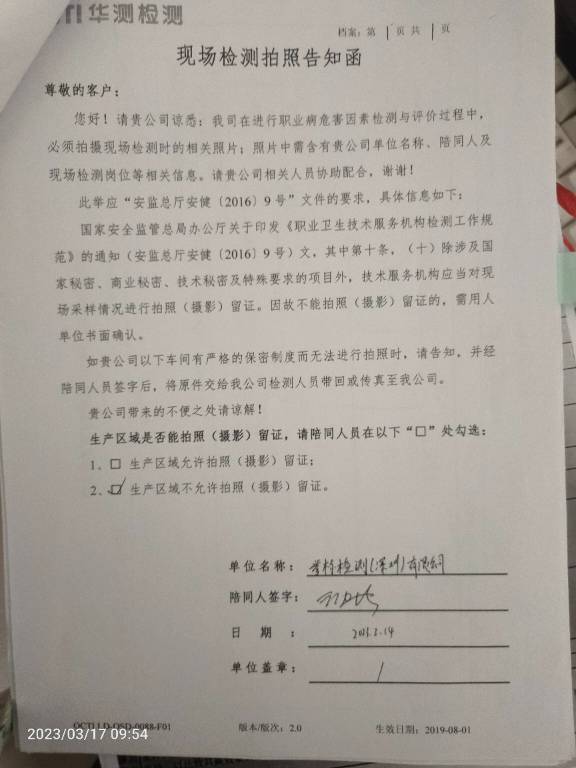 TI 华测检测
档案:第 1 页 共 1 页
现场检测拍照告知函
尊敬的客户:
您好!请贵公司谅悉:我司在进行职业病危害因素检测与评价过程中,
必须拍摄现场检测时的相关照片;照片中需含有贵公司单位名称、陪同人及
现场检测岗位等相关信息。请贵公司相关人员协助配合,谢谢!
此举应“安监总厅安健〔2016〕9号”文件的要求,具体信息如下:
国家安全监管总局办公厅关于印发《职业卫生技术服务机构检测工作规
范》的通知(安监总厅安健〔2016〕9号)文,其中第十条,(十)除涉及国
家秘密、商业秘密、技术秘密及特殊要求的项目外,技术服务机构应当对现
场采样情况进行拍照(摄影)留证。因故不能拍照(摄影)留证的,需用人
单位书面确认。
如贵公司以下车间有严格的保密制度而无法进行拍照时,请告知,并经
陪同人员签字后,将原件交给我公司检测人员带回或传真至我公司。
贵公司带来的不便之处请谅解!
生产区域是否能拍照(摄影)留证,请陪同人员在以下“□”处勾选:
1、□ 生产区域允许拍照(摄影)留证;
2、☑ 生产区域不允许拍照(摄影)留证。
单位名称: 检测(深圳)有限公司
陪同人签字:
日 期 :
单位盖章: /
版本/版次:2.0 生效日期:2019-08-01
2023/03/17 09:54